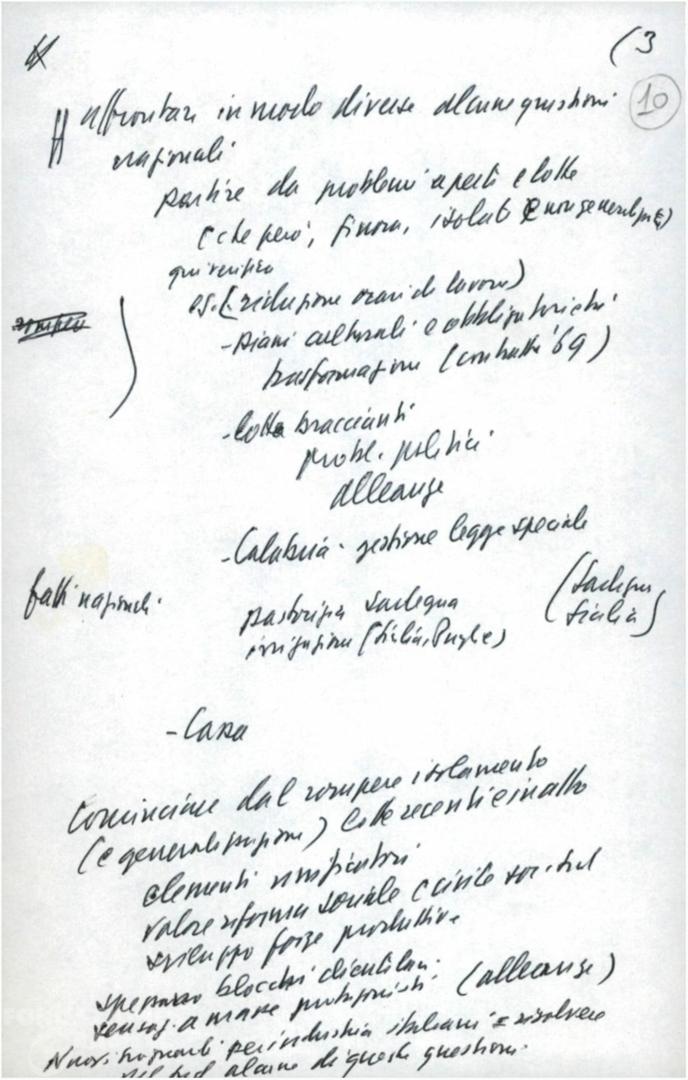 (3
10
affrontare in modo diverso alcune questioni
nazionali
partire da problemi aperti e lotte
e che però, finora, isolati e non generalizzati)
qui verifica
es. (riduzione orari di lavoro)
rompere
- piani culturali e obbligatorietà
trasformazione (contratti '69)
- lotta braccianti
probl. politici
alleanze
- Calabria - gestione legge speciale
fatti nazionali
pastorizia Sardegna
(Sardegna
Sicilia)
irrigazione (Sicilia, Puglie)
- Casa
Cominciare dal rompere isolamento
(e generalizzazione) lotte recenti e in atto
elementi unificatori
valore riforma sociale e civile
sviluppo forze produttive
spezzano blocchi clientelari
a masse protagonisti. (alleanze)
Nuovi per industria italiana = risolvere
nel Sud alcune di queste questioni.